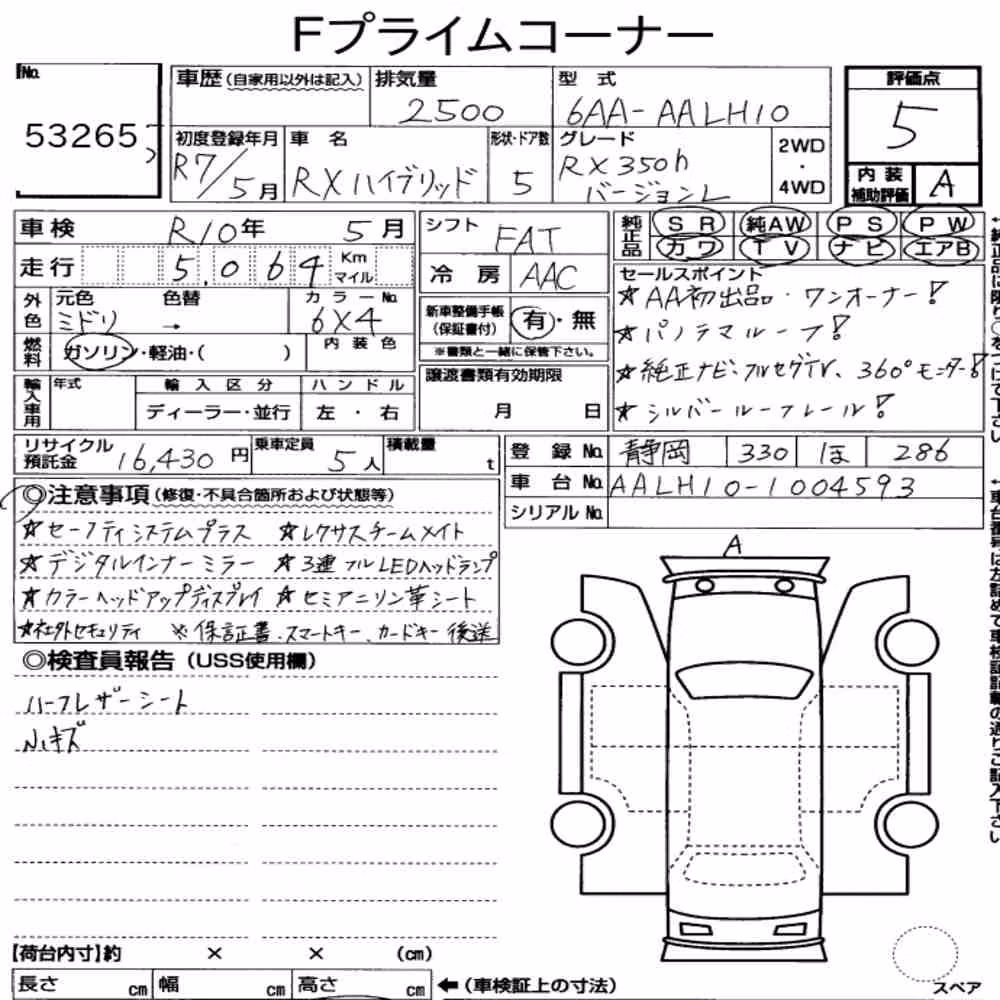 Fプライムコーナー
No.
53265
車歴(自家用以外は記入)
排気量
2500
型 式
6AA-AALH10
評価点
5
初度登録年月
R7/5月
車 名
RXハイブリッド
形状・ドア数
5
グレード
RX350h
バージョンL
2WD
・
4WD
内 装
補助評価
A
車検
R10年 5月
走行
5,064
Km
マイル
シフト
FAT
冷 房
AAC
純正品
SR
純AW
PS
PW
カワ
TV
ナビ
エアB
外色
元色 色替
ミドリ →
カラーNo.
6X4
燃料
ガソリン・軽油・( )
内 装 色
新車整備手帳
(保証書付)
有・無
※書類と一緒に保管下さい。
セールスポイント
☆AA初出品・ワンオーナー!
☆パノラマルーフ!
☆純正ナビ・フルセグTV、360°モニター!
☆シルバールーフレール!
輸入車用
年式
輸 入 区 分
ディーラー・並行
ハ ン ド ル
左 ・ 右
譲渡書類有効期限
月 日
リサイクル
預託金
16,430 円
乗車定員
5人
積載量
t
登 録 No.
静岡 330 ほ 286
車 台 No.
AALH10-1004593
シリアル No.
◎注意事項(修復・不具合箇所および状態等)
☆セーフティシステムプラス ☆レクサスチームメイト
☆デジタルインナーミラー ☆3連フルLEDヘッドランプ
☆カラーヘッドアップディスプレイ ☆セミアニリン革シート
☆社外セキュリティ ※保証書、スマートキー、カードキー後送
◎検査員報告(USS使用欄)
ハーフレザーシート
小キズ
A
【荷台内寸】約 × × (cm)
長さ cm
幅 cm
高さ cm
←(車検証上の寸法)
スペア